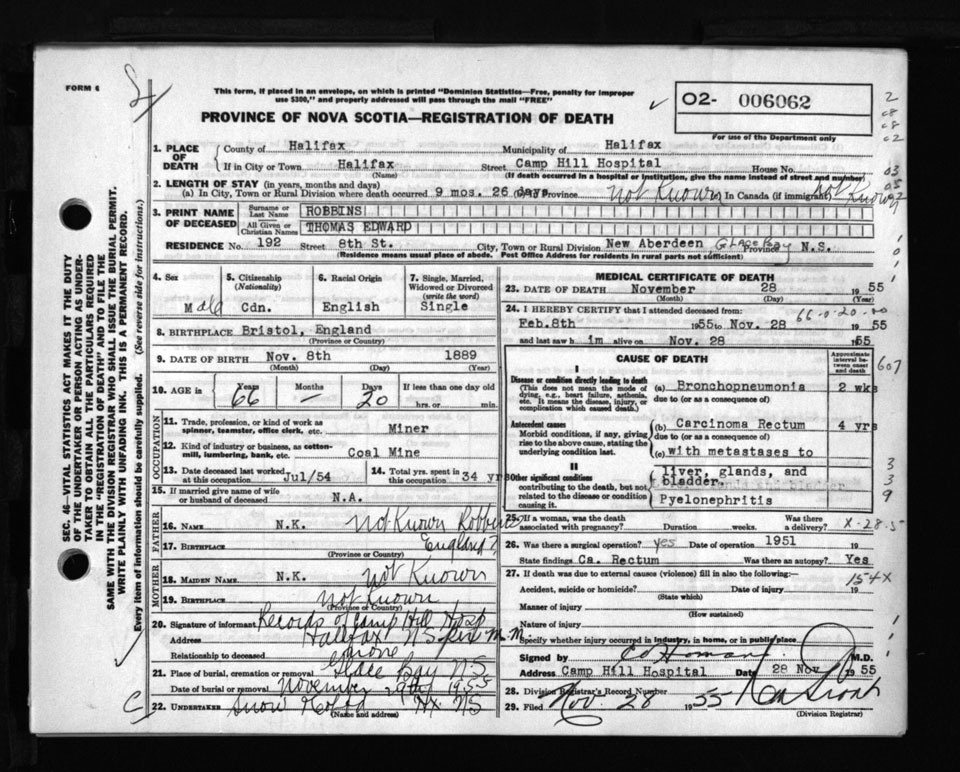 FORM 6
This form, if placed in an envelope, on which is printed "Dominion Statistics—Free, penalty for improper
use $300," and properly addressed will pass through the mail "FREE"
PROVINCE OF NOVA SCOTIA—REGISTRATION OF DEATH
02- 006062
For use of the Department only
1. PLACE OF DEATH County of Halifax Municipality of Halifax
If in City or Town Halifax Street Camp Hill Hospital House No.
(Name) (If death occurred in a hospital or institution, give the name instead of street and number)
2. LENGTH OF STAY (in years, months and days)
(a) In City, Town or Rural Division where death occurred 9 mos. 26 days Province not Known In Canada (if immigrant) not Known
3. PRINT NAME OF DECEASED Surname or Last Name ROBBINS
All Given or Christian Names THOMAS EDWARD
RESIDENCE No. 192 Street 8th St. City, Town or Rural Division New Aberdeen Glace Bay Province N.S.
(Residence means usual place of abode. Post Office Address for residents in rural parts not sufficient)
4. Sex Male
5. Citizenship (Nationality) Cdn.
6. Racial Origin English
7. Single, Married, Widowed or Divorced (write the word) Single
8. BIRTHPLACE Bristol, England
(Province or Country)
9. DATE OF BIRTH Nov. 8th 1889
(Month) (Day) (Year)
10. AGE in Years 66 Months — Days 20 If less than one day old hrs. or min.
OCCUPATION
11. Trade, profession, or kind of work as spinner, teamster, office clerk, etc. Miner
12. Kind of industry or business, as cotton-mill, lumbering, bank, etc. Coal Mine
13. Date deceased last worked at this occupation Jul/54
14. Total yrs. spent in this occupation 34 yrs
15. If married give name of wife or husband of deceased N.A.
FATHER
16. NAME N.K. not Known Robbins
17. BIRTHPLACE England?
(Province or Country)
MOTHER
18. MAIDEN NAME N.K. not Known
19. BIRTHPLACE not Known
(Province or Country)
20. Signature of informant Records of Camp Hill Hosp
Address Halifax NS per M.M.
Relationship to deceased
21. Place of burial, cremation or removal Glace Bay NS
Date of burial or removal November 29th 1955
22. UNDERTAKER Snow Hx. NS
(Name and address)
MEDICAL CERTIFICATE OF DEATH
23. DATE OF DEATH November 28 1955
(Month) (Day) (Year)
24. I HEREBY CERTIFY that I attended deceased from: 66-0-20-00
Feb.8th 1955 to Nov. 28 1955
and last saw him alive on Nov. 28 1955
CAUSE OF DEATH
Approximate interval between onset and death
607
I
Disease or condition directly leading to death (a) Bronchopneumonia 2 wks
(This does not mean the mode of dying, e.g., heart failure, asthenia, etc. It means the disease, injury, or complication which caused death.)
due to (or as a consequence of)
Antecedent causes (b) Carcinoma Rectum 4 yrs
Morbid conditions, if any, giving rise to the above cause, stating the underlying condition last.
due to (or as a consequence of)
(c) with metastases to
II
Other significant conditions liver, glands, and bladder.
contributing to the death, but not related to the disease or condition causing it.
Pyelonephritis
25. If a woman, was the death associated with pregnancy? Duration weeks. Was there a delivery? X-28-5
26. Was there a surgical operation? yes Date of operation 1951
State findings Ca. Rectum Was there an autopsy? Yes
27. If death was due to external causes (violence) fill in also the following:—
154X
Accident, suicide or homicide? Date of injury 19
(State which)
Manner of injury
(How sustained)
Nature of injury
Specify whether injury occurred in industry, in home, or in public place
Signed by M.D.
Address Camp Hill Hospital Date 28 Nov 1955
28. Division Registrar's Record Number
29. Filed Nov. 28 1955
(Division Registrar)
SEC. 46—VITAL STATISTICS ACT MAKES IT THE DUTY
OF THE UNDERTAKER OR PERSON ACTING AS UNDER-
TAKER TO OBTAIN ALL THE PARTICULARS REQUIRED
IN THE "REGISTRATION OF DEATH" AND TO FILE THE
SAME WITH THE DIVISION REGISTRAR WHO SHALL ISSUE THE BURIAL PERMIT.
WRITE PLAINLY WITH UNFADING INK. THIS IS A PERMANENT RECORD.
Every item of information should be carefully supplied. (See reverse side for instructions.)